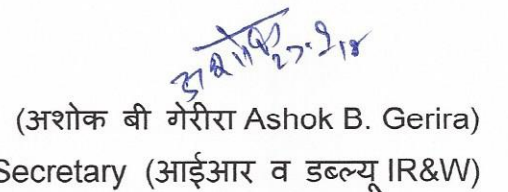 अशोक 27.9.18
(अशोक बी गेरीरा Ashok B. Gerira)
Secretary (आईआर व डब्ल्यू IR&W)